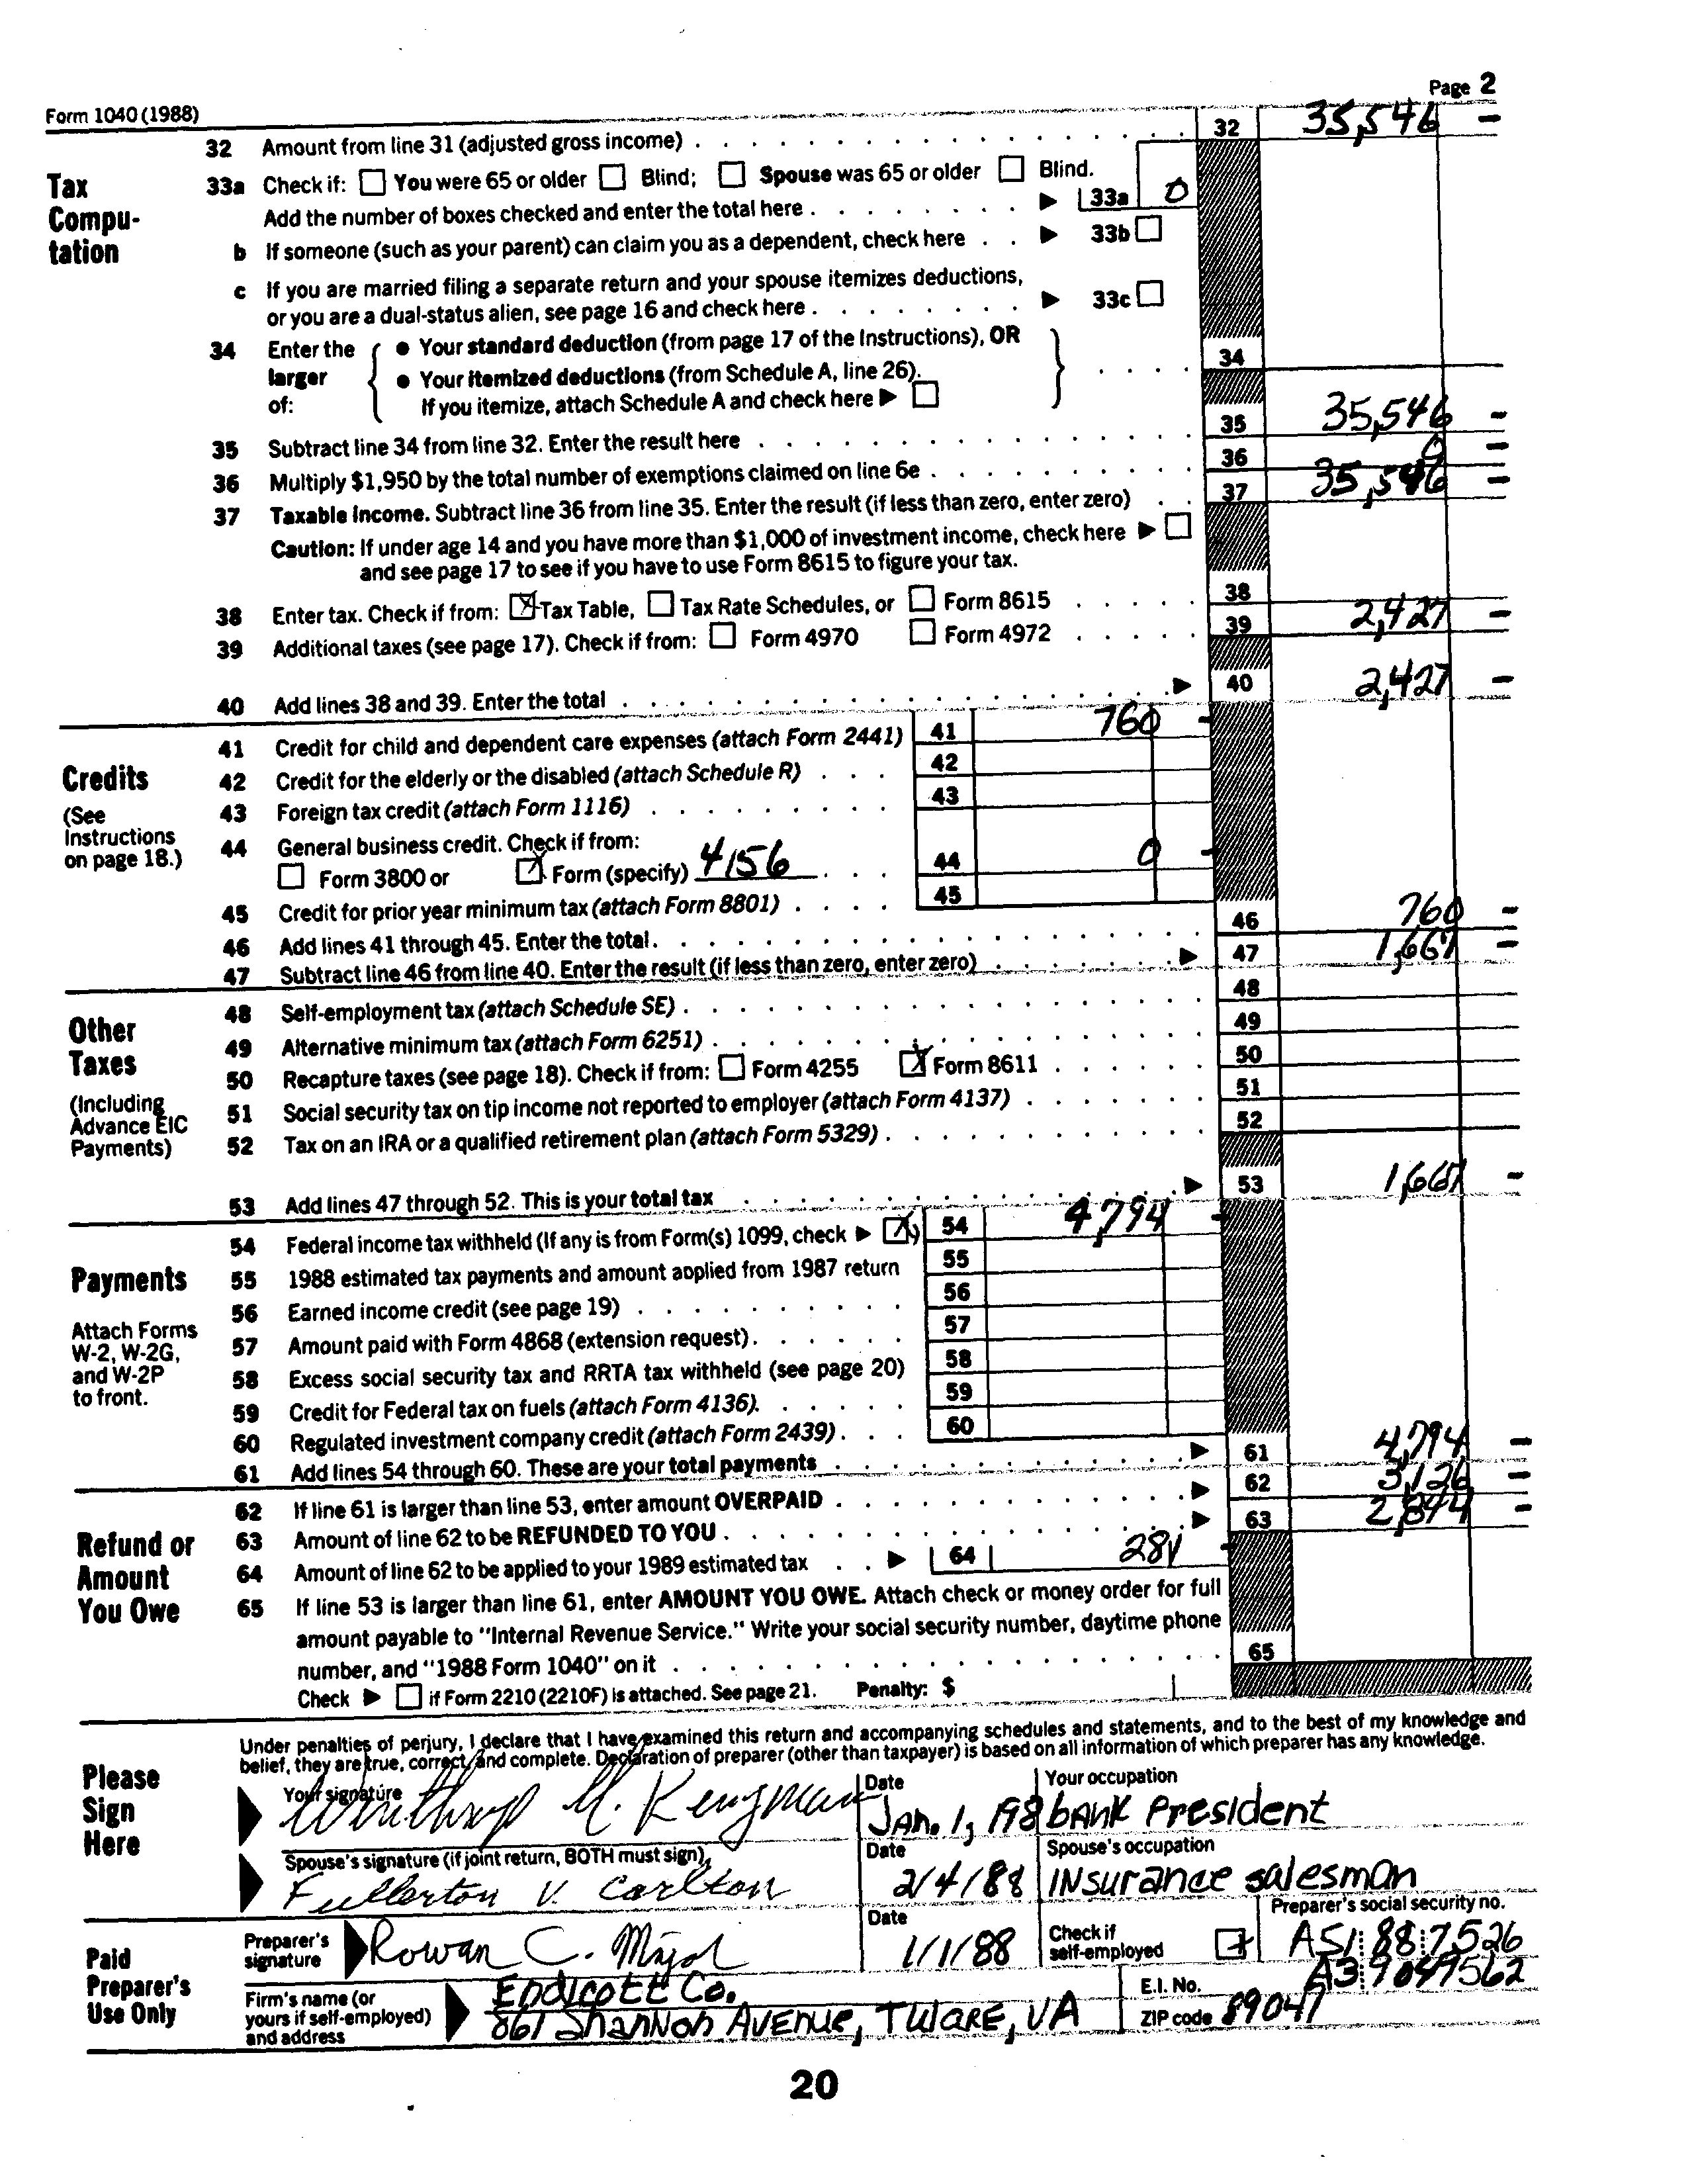 Form 1040 (1988) Page 2
32 Amount from line 31 (adjusted gross income) 32 35,546 –
Tax Compu-tation
33a Check if: You were 65 or older Blind; Spouse was 65 or older Blind.
Add the number of boxes checked and enter the total here 33a 0
b If someone (such as your parent) can claim you as a dependent, check here 33b
c If you are married filing a separate return and your spouse itemizes deductions,
or you are a dual-status alien, see page 16 and check here 33c
34 Enter the larger of:
• Your standard deduction (from page 17 of the Instructions), OR
• Your itemized deductions (from Schedule A, line 26).
If you itemize, attach Schedule A and check here 34
35 Subtract line 34 from line 32. Enter the result here 35 35,546 –
36 Multiply $1,950 by the total number of exemptions claimed on line 6e 36 0 –
37 Taxable income. Subtract line 36 from line 35. Enter the result (if less than zero, enter zero) 37 35,546 –
Caution: If under age 14 and you have more than $1,000 of investment income, check here
and see page 17 to see if you have to use Form 8615 to figure your tax.
38 Enter tax. Check if from: X Tax Table, Tax Rate Schedules, or Form 8615 38 2,427 –
39 Additional taxes (see page 17). Check if from: Form 4970 Form 4972 39
40 Add lines 38 and 39. Enter the total 40 2,427 –
Credits
(See Instructions on page 18.)
41 Credit for child and dependent care expenses (attach Form 2441) 41 760 –
42 Credit for the elderly or the disabled (attach Schedule R) 42
43 Foreign tax credit (attach Form 1116) 43
44 General business credit. Check if from:
Form 3800 or X Form (specify) 4156 44 0 –
45 Credit for prior year minimum tax (attach Form 8801) 45
46 Add lines 41 through 45. Enter the total 46 760 –
47 Subtract line 46 from line 40. Enter the result (if less than zero, enter zero) 47 1,667 –
Other Taxes
(Including Advance EIC Payments)
48 Self-employment tax (attach Schedule SE) 48
49 Alternative minimum tax (attach Form 6251) 49
50 Recapture taxes (see page 18). Check if from: Form 4255 X Form 8611 50
51 Social security tax on tip income not reported to employer (attach Form 4137) 51
52 Tax on an IRA or a qualified retirement plan (attach Form 5329) 52
53 Add lines 47 through 52. This is your total tax 53 1,667 –
Payments
Attach Forms W-2, W-2G, and W-2P to front.
54 Federal income tax withheld (If any is from Form(s) 1099, check X) 54 4,794 –
55 1988 estimated tax payments and amount applied from 1987 return 55
56 Earned income credit (see page 19) 56
57 Amount paid with Form 4868 (extension request) 57
58 Excess social security tax and RRTA tax withheld (see page 20) 58
59 Credit for Federal tax on fuels (attach Form 4136) 59
60 Regulated investment company credit (attach Form 2439) 60
61 Add lines 54 through 60. These are your total payments 61 4,794 –
Refund or Amount You Owe
62 If line 61 is larger than line 53, enter amount OVERPAID 62 3,126 –
63 Amount of line 62 to be REFUNDED TO YOU 63 2,844 –
64 Amount of line 62 to be applied to your 1989 estimated tax 64 281 –
65 If line 53 is larger than line 61, enter AMOUNT YOU OWE. Attach check or money order for full
amount payable to "Internal Revenue Service." Write your social security number, daytime phone
number, and "1988 Form 1040" on it 65
Check if Form 2210 (2210F) is attached. See page 21. Penalty: $
Please Sign Here
Under penalties of perjury, I declare that I have examined this return and accompanying schedules and statements, and to the best of my knowledge and
belief, they are true, correct, and complete. Declaration of preparer (other than taxpayer) is based on all information of which preparer has any knowledge.
Your signature Winthrop M. Kengman Date Jan. 1, 198 Your occupation bank President
Spouse's signature (if joint return, BOTH must sign) Fullerton V. Carlton Date 2/4/88 Spouse's occupation Insurance salesman
Paid Preparer's Use Only
Preparer's signature Rowan C. Date 1/1/88 Check if self-employed X Preparer's social security no. AS1 88 7526
Firm's name (or yours if self-employed) and address Endicott Co. E.I. No. A3 9049562
861 Shannon Avenue, Tulare, VA ZIP code 89047
20